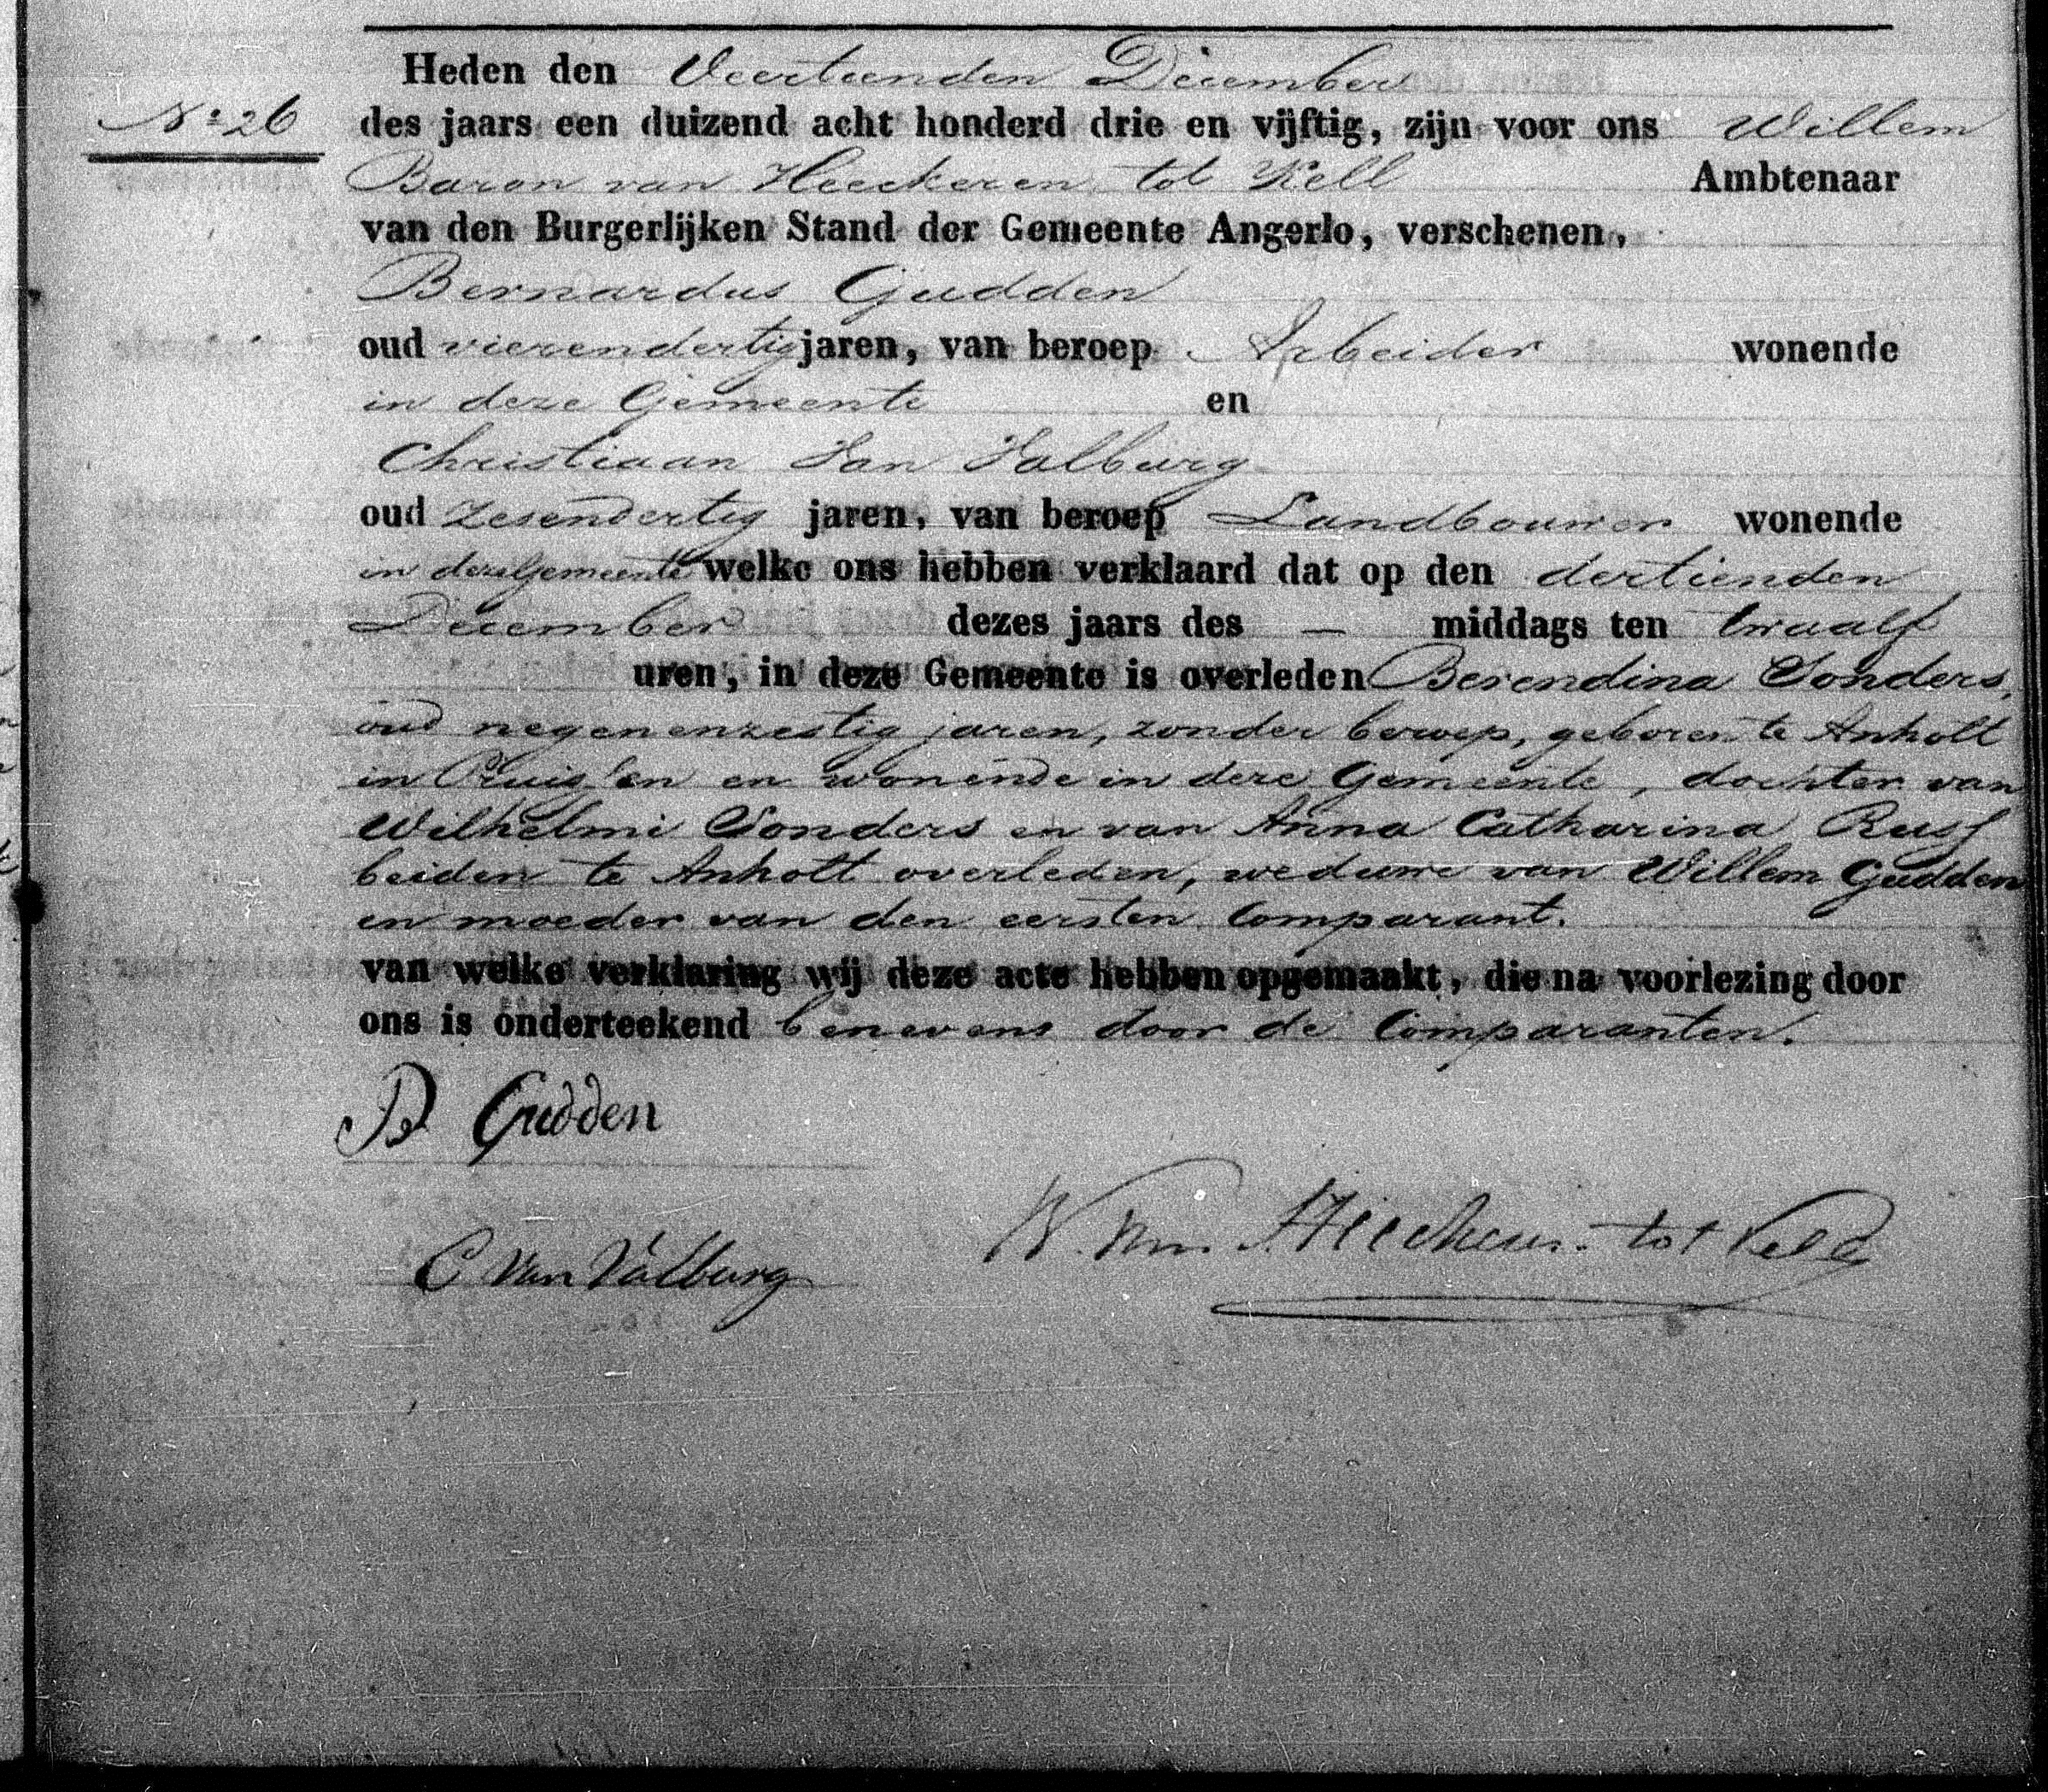 Heden den Veertienden December
No 26
des jaars een duizend acht honderd drie en vijftig, zijn voor ons Willem
Baron van Heeckeren tot Kell Ambtenaar
van den Burgerlijken Stand der Gemeente Angerlo, verschenen,
Bernardus Gudden
oud vierendertig jaren, van beroep Arbeider wonende
in deze Gemeente en
Christiaan Van Valburg
oud zesendertig jaren, van beroep Landbouwer wonende
in deze Gemeente welke ons hebben verklaard dat op den dertienden
December dezes jaars des — middags ten twaalf
uren, in deze Gemeente is overleden Berendina Sonders,
oud negenenzestig jaren, zonder beroep, geboren te Anholt
in Pruissen en wonende in deze Gemeente, dochter van
Wilhelmi Sonders en van Anna Catharina Russ
beiden te Anholt overleden, weduwe van Willem Gudden
en moeder van den eersten Comparant.
van welke verklaring wij deze acte hebben opgemaakt, die na voorlezing door
ons is onderteekend benevens door de Comparanten.
B Gudden
W. van Heeckeren tot Kell
C van Valburg